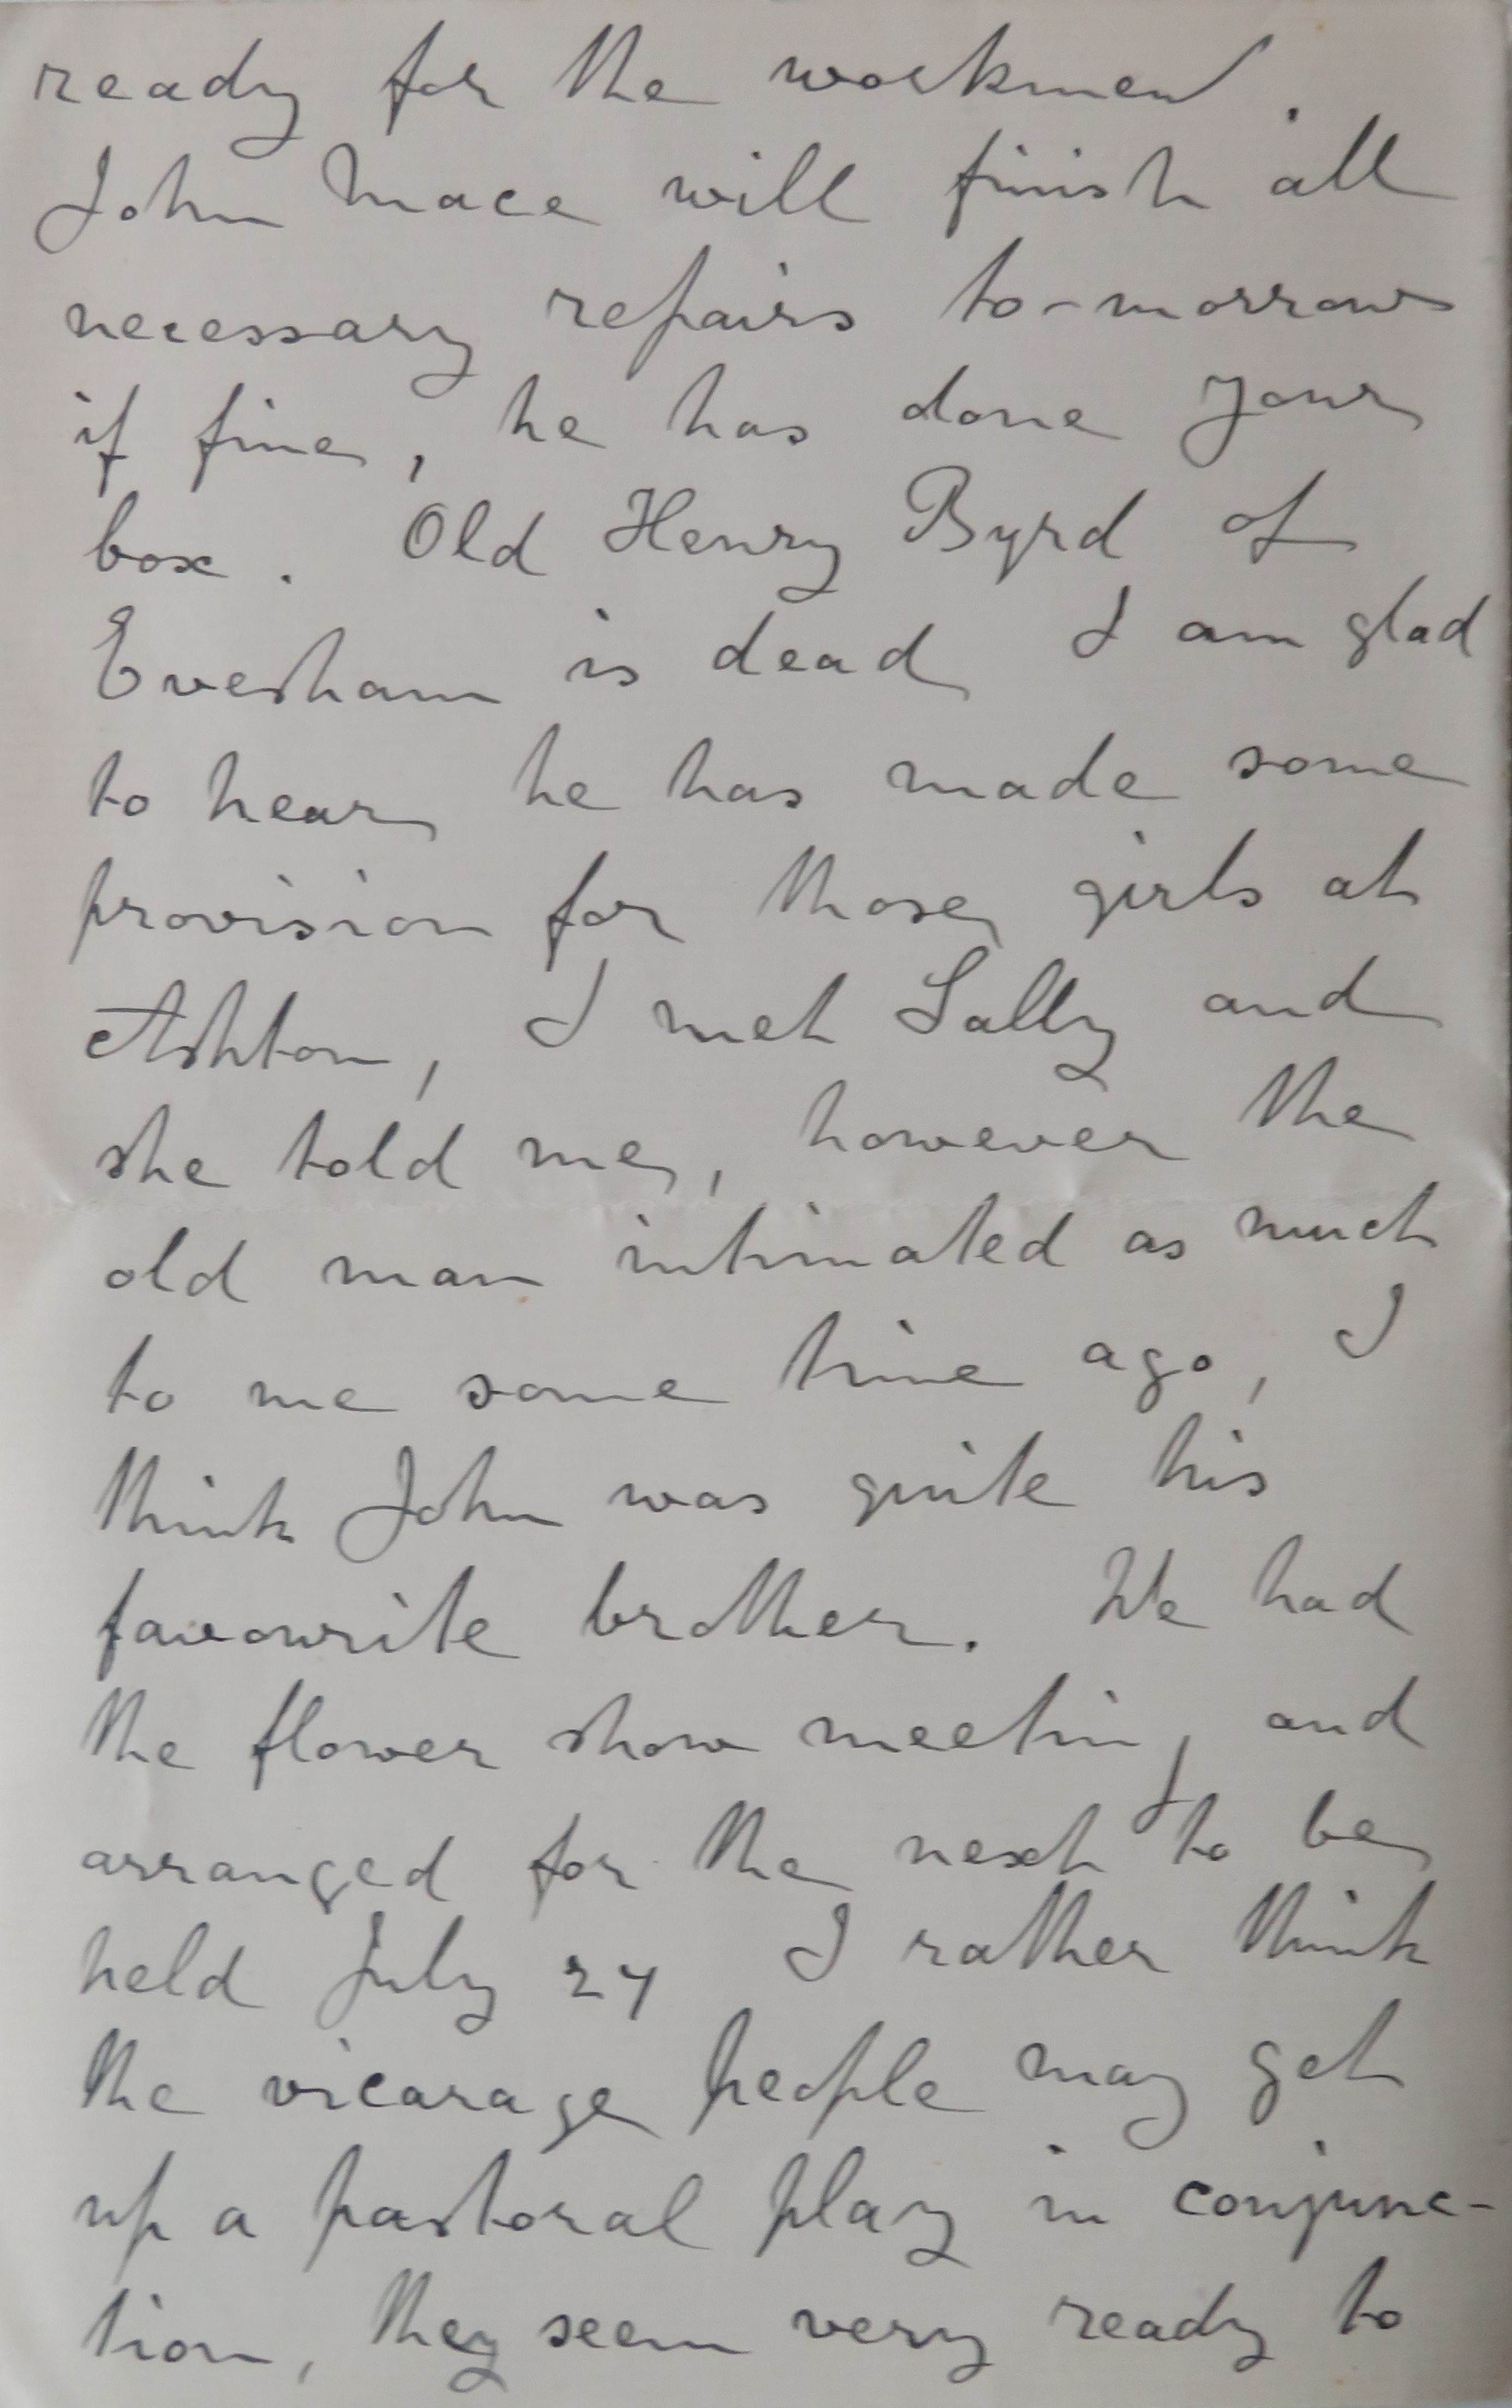 ready for the workmen.
John Mace will finish all
necessary repairs to-morrow
if fine, he has done your
box. Old Henry Byrd of
Evesham is dead I am glad
to hear he has made some
provision for those girls at
Ashton, I met Sally and
she told me, however the
old man intimated as much
to me some time ago, I
think John was quite his
favourite brother. We had
the flower show meeting and
arranged for the next to be
held July 24 I rather think
the vicarage people may get
up a pastoral play in conjunc-
tion, they seem very ready to